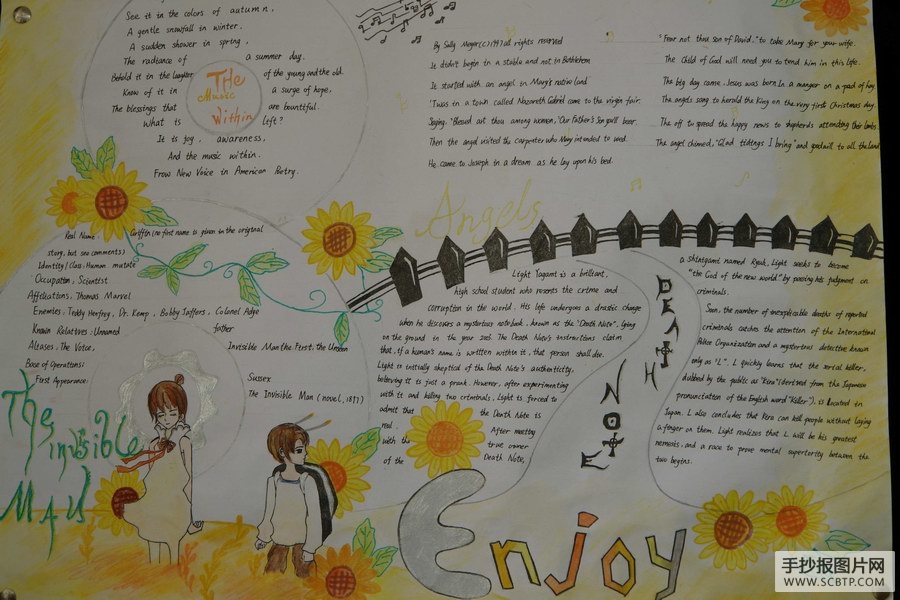 See it in the colors of autumn,
A gentle snowfall in winter.
A sudden shower in spring,
The radiance of a summer day.
Behold it in the laughter of the young and the old.
Know of it in a surge of hope,
The blessings that are bountiful.
What is left?
It is joy, awareness,
And the music within.
From New Voice in American Poetry.
THe
Music
Within
By Sally Meyer(c)1997 all rights reserved
It didn't begin in a stable and not in Bethlehem
It started with an angel in Mary's native land
'Twas in a town called Nazareth Gabriel come to the virgin fair.
Saying, "Blessed art thou among women, "Our Father's Son you'll bear.
Then the angel visited the carpenter who Mary intended to wed.
He came to Joseph in a dream as he lay upon his bed.
"Fear not thou son of David," to take Mary for your wife.
The Child of God will need you to tend him in this life.
The big day came, Jesus was born In a manger on a pad of hay
The angels sang to herald the King on the very first Christmas day.
The off to spread the happy news to shepherds attending their lambs.
The angel chimed, "Glad tidings I bring" and goodwill to all the land
Angels
Real Name: Griffin (no first name is given in the original
story, but see comments)
Identity/Class: Human mutate
Occupation: Scientist
Affilications: Thomas Marvel
Enemies: Teddy Henfrey, Dr. Kemp, Bobby Jaffers, Colonel Adye
Known Relatives: Unnamed father
Aliases: The Voice, Invisible Man the First, the Unseen
Base of Operations: Sussex
First Appearance: The Invisible Man (novel, 1897)
The
invisible
MAN
Light Yagami is a brilliant,
high school student who resents the crime and
corruption in the world. His life undergoes a drastic change
when he discovers a mysterious notebook, known as the "Death Note", lying
on the ground in the year 2003. The Death Note's instructions claim
that, if a human's name is written within it, that person shall die.
Light is initially skeptical of the Death Note's authenticity,
believing it is just a prank. However, after experimenting
with it and killing two criminals, Light is forced to
admit that the Death Note is
real. After meeting
with the true owner
of the Death Note,
DEATH
NOTE
a shinigami named Ryuk, Light seeks to become
"the God of the new world" by passing his judgment on
criminals.
Soon, the number of inexplicable deaths of reported
criminals catches the attention of the International
Police Organization and a mysterious detective known
only as "L". L quickly learns that the serial killer,
dubbed by the public as "Kira" (derived from the Japanese
pronunciation of the English word "Killer"), is located in
Japan. L also concludes that Kira can kill people without laying
a finger on them. Light realizes that L will be his greatest
nemesis, and a race to prove mental superiority between the
two begins.
Enjoy
手抄报图片网
WWW.SCBTP.COM